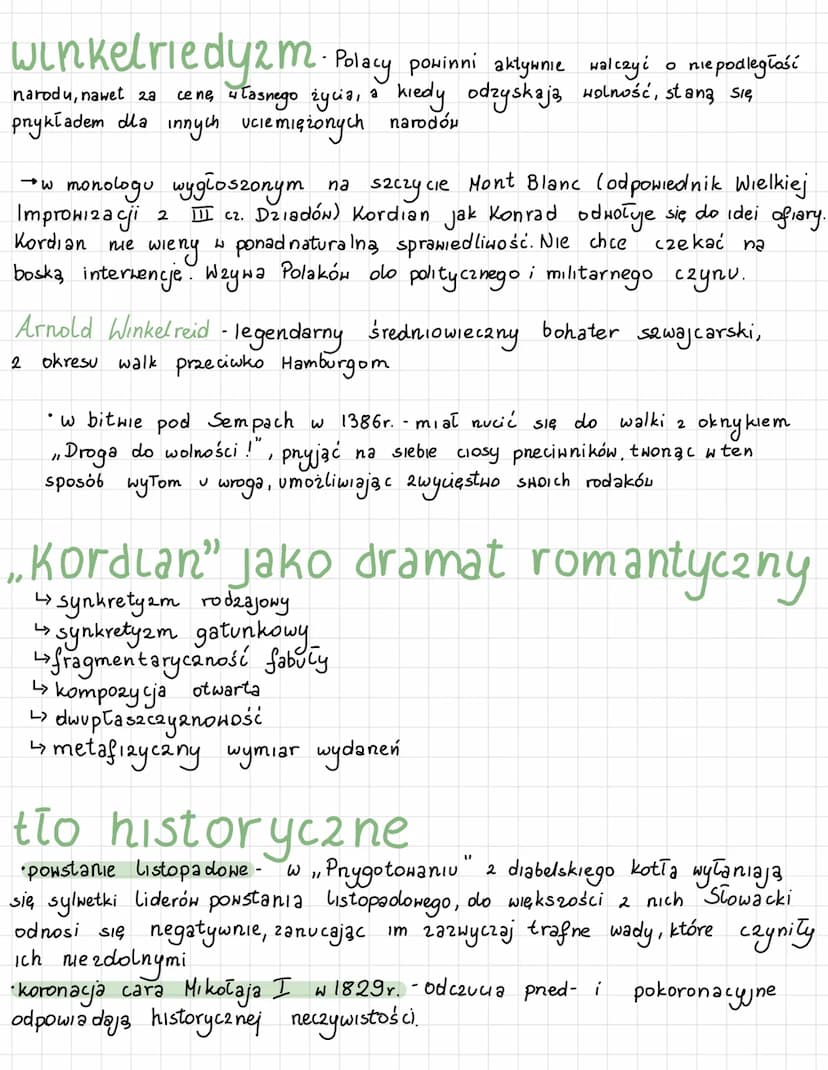 winkelriedyzm - Polacy powinni aktywnie walczyć o niepodległość
narodu, nawet za cenę własnego życia, a kiedy odzyskają wolność, staną się
przykładem dla innych uciemiężonych narodów
→ w monologu wygłoszonym na szczycie Mont Blanc (odpowiednik Wielkiej
Improwizacji z III cz. Dziadów) Kordian jak Konrad odwołuje się do idei ofiary.
Kordian nie wierzy w ponadnaturalną sprawiedliwość. Nie chce czekać na
boską interwencję. Wzywa Polaków do politycznego i militarnego czynu.
Arnold Winkelreid - legendarny średniowieczny bohater szwajcarski,
z okresu walk przeciwko Hamburgom
• w bitwie pod Sempach w 1386r. - miał rzucić się do walki z okrzykiem
„Droga do wolności!", przyjąć na siebie ciosy przeciwników, tworząc w ten
sposób wyłom u wroga, umożliwiając zwycięstwo swoich rodaków
„Kordian" jako dramat romantyczny
↳ synkretyzm rodzajowy
↳ synkretyzm gatunkowy
↳ fragmentaryczność fabuły
↳ kompozycja otwarta
↳ dwupłaszczyznowość
↳ metafizyczny wymiar wydarzeń
tło historyczne
• powstanie listopadowe - w „Przygotowaniu" z diabelskiego kotła wyłaniają
się sylwetki liderów powstania listopadowego, do większości z nich Słowacki
odnosi się negatywnie, zarzucając im zazwyczaj trafne wady, które czyniły
ich niezdolnymi
• koronacja cara Mikołaja I w 1829r. - odczucia przed- i pokoronacyjne
odpowiadają historycznej rzeczywistości.